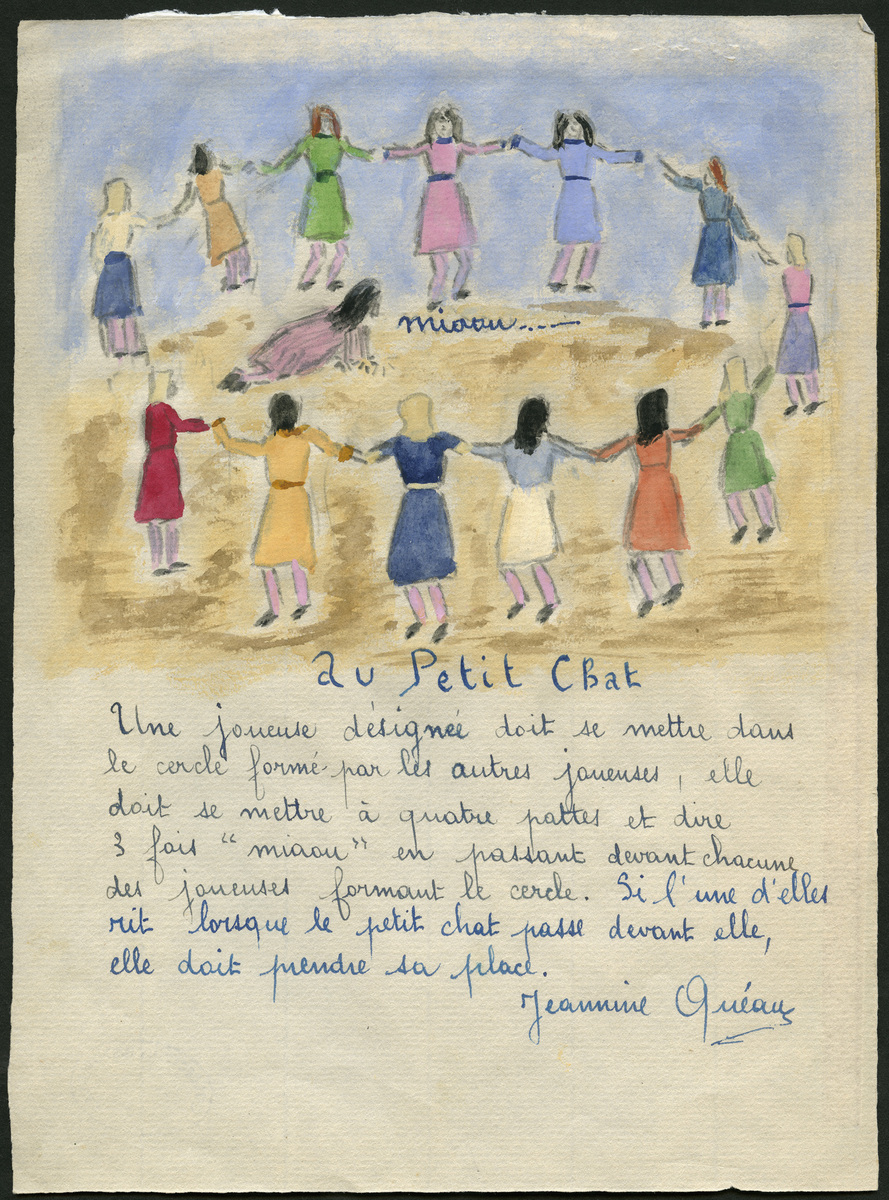 miaou....—
Au Petit Chat
Une joueuse désignée doit se mettre dans
le cercle formé par les autres joueuses, elle
doit se mettre à quatre pattes et dire
3 fois "miaou" en passant devant chacune
des joueuses formant le cercle. Si l'une d'elles
rit lorsque le petit chat passe devant elle,
elle doit prendre sa place.
Jeannine Quéau